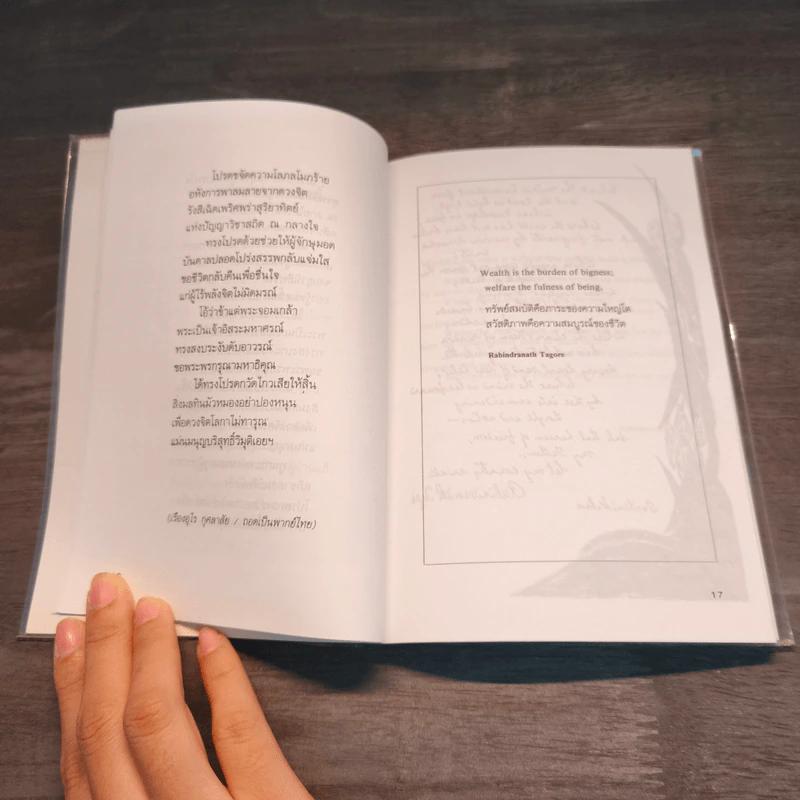 โปรดขจัดความโลภลโมภร้าย
อหังการพาลมลายจากดวงจิต
รังสีเฉิดเพริศพร่าสุริยาทิตย์
แห่งปัญญาวิชาสถิต ณ กลางใจ
ทรงโปรดด้วยช่วยให้ผู้จักษุมอด
บันดาลปลอดโปร่งสรรพกลับแจ่มใส
ขอชีวิตกลับคืนเพื่อชื่นใจ
แก่ผู้ไร้พลังจิตไม่มิดมรณ์
โอ้ว่าข้าแต่พระจอมเกล้า
พระเป็นเจ้าอิสระมหาศรณ์
ทรงสงบระงับดับอาวรณ์
ขอพระพรกรุณามหาธิคุณ
ได้ทรงโปรดกวัดไกวเสียให้สิ้น
สิ่งมลทินมัวหมองอย่าปองหนุน
เพื่อดวงจิตโลกาไม่ทารุณ
แม่นมนุญบริสุทธิ์วิมุติเอยฯ
(เรืองอุไร กุศลาสัย / ถอดเป็นพากย์ไทย)
Wealth is the burden of bigness;
welfare the fulness of being.
ทรัพย์สมบัติคือภาระของความใหญ่โต
สวัสดิภาพคือความสมบูรณ์ของชีวิต
Rabindranath Tagore
17